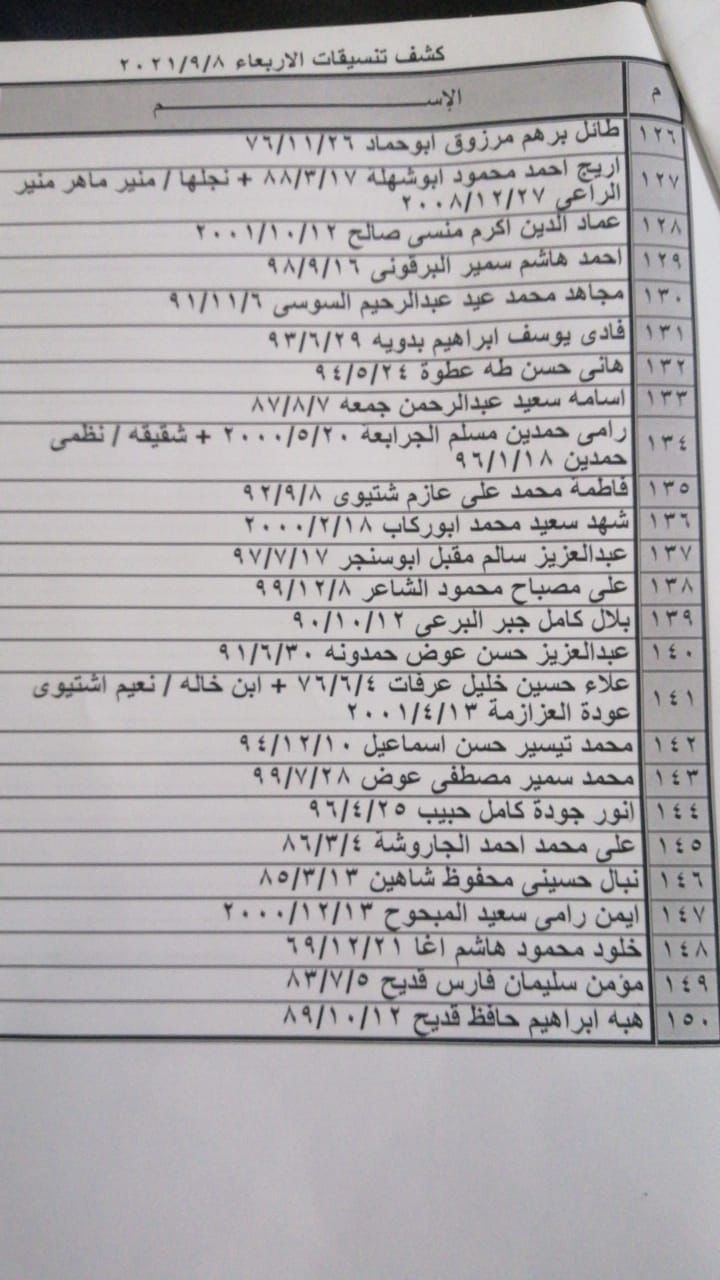 كشف تنسيقات الاربعاء ٢٠٢١/٩/٨
م الإســـــــــــــــــــــــم
١٢٦ طائل برهم مرزوق ابوحماد ٧٦/١١/٢٦
١٢٧ اريج احمد محمود ابوشهله ٨٨/٣/١٧ + نجلها / منير ماهر منير
الراعي ٢٠٠٨/١٢/٢٧
١٢٨ عماد الدين اكرم منسى صالح ٢٠٠١/١٠/١٢
١٢٩ احمد هاشم سمير البرقونى ٩٨/٩/١٦
١٣٠ مجاهد محمد عيد عبدالرحيم السوسى ٩١/١١/٦
١٣١ فادى يوسف ابراهيم بدويه ٩٣/٦/٢٩
١٣٢ هانى حسن طه عطوة ٩٤/٥/٢٤
١٣٣ اسامه سعيد عبدالرحمن جمعه ٨٧/٨/٧
١٣٤ رامى حمدين مسلم الجرابعة ٢٠٠٠/٥/٢٠ + شقيقه / نظمى
حمدين ٩٦/١/١٨
١٣٥ فاطمة محمد على عازم شتيوى ٩٢/٩/٨
١٣٦ شهد سعيد محمد ابوركاب ٢٠٠٠/٢/١٨
١٣٧ عبدالعزيز سالم مقبل ابوسنجر ٩٧/٧/١٧
١٣٨ على مصباح محمود الشاعر ٩٩/١٢/٨
١٣٩ بلال كامل جبر البرعى ٩٠/١٠/١٢
١٤٠ عبدالعزيز حسن عوض حمدونه ٩١/٦/٣٠
١٤١ علاء حسين خليل عرفات ٧٦/٦/٤ + ابن خاله / نعيم اشتيوى
عودة العزازمة ٢٠٠١/٤/١٣
١٤٢ محمد تيسير حسن اسماعيل ٩٤/١٢/١٠
١٤٣ محمد سمير مصطفى عوض ٩٩/٧/٢٨
١٤٤ انور جودة كامل حبيب ٩٦/٤/٢٥
١٤٥ على محمد احمد الجاروشة ٨٦/٣/٤
١٤٦ نبال حسينى محفوظ شاهين ٨٥/٣/١٣
١٤٧ ايمن رامى سعيد المبحوح ٢٠٠٠/١٢/١٣
١٤٨ خلود محمود هاشم اغا ٦٩/١٢/٢١
١٤٩ مؤمن سليمان فارس قديح ٨٣/٧/٥
١٥٠ هبه ابراهيم حافظ قديح ٨٩/١٠/١٢